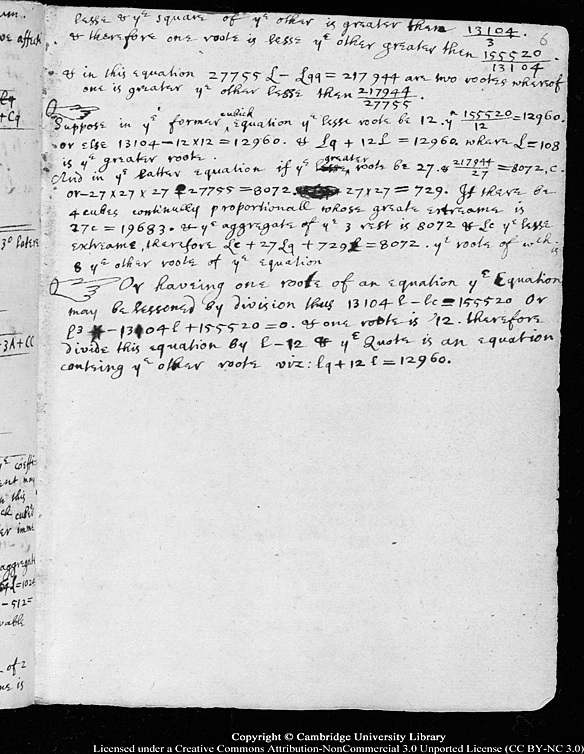 lesse & yᵉ square of yᵉ other is greater then 13104/3.
& therefore one roote is lesse yᵉ other greater then 155520/13104.
6
& in this equation 27755 L - Lqq = 217944 are two rootes whereof
one is greater yᵉ other lesse then 217944/27755.
Suppose in yᵉ former cubick equation yᵉ lesse roote be 12. yⁿ 155520/12 = 12960.
or else 13104 - 12×12 = 12960. & Lq + 12L = 12960. where L = 108
is yᵉ greater roote.
And in yᵉ latter equation if yᵉ greater roote be 27. & 217944/27 = 8072, c.
or - 27×27×27 + 27755 = 8072. 27×27 = 729. If there be
4 cubes continually proportionall whose greate extreame is
27c = 19683. & yᵉ aggregate of yᵉ 3 rest is 8072 & Lc yᵉ lesse
extreame, therefore Lc + 27Lq + 729L = 8072. yᵉ roote of wch is
8 yᵉ other roote of yᵉ equation
Or haveing one roote of an equation yᵉ Equation
may be lessoned by division thus 13104 l - lc = 155520 Or
l3 * - 13104 l + 155520 = 0. & one roote is 12. therefore
divide this equation by l - 12 & yᵉ Quote is an equation
conteing yᵉ other roote viz: lq + 12 l = 12960.
um.
affick
+Cq
3° latere
-3A+CC
yᵉ coeffic
this
cubic
aggregate
=1024
-512=
vable
of 2
ne is
Copyright © Cambridge University Library
Licensed under a Creative Commons Attribution-NonCommercial 3.0 Unported License (CC BY-NC 3.0)